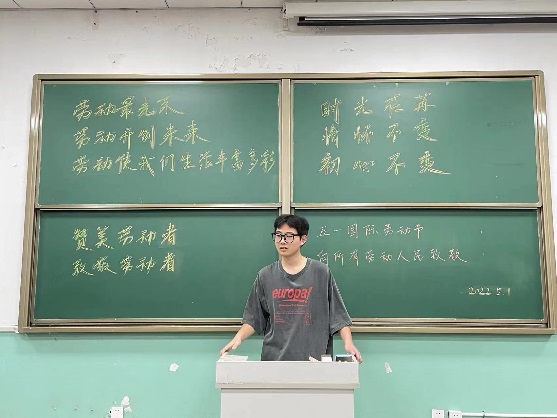 劳动最光荣
劳动开创未来
劳动使我们生活丰富多彩
时光荏苒
情怀不变
初心不变
赞美劳动者
致敬劳动者
五一国际劳动节
向所有劳动人民致敬
2022.5.1
europa!